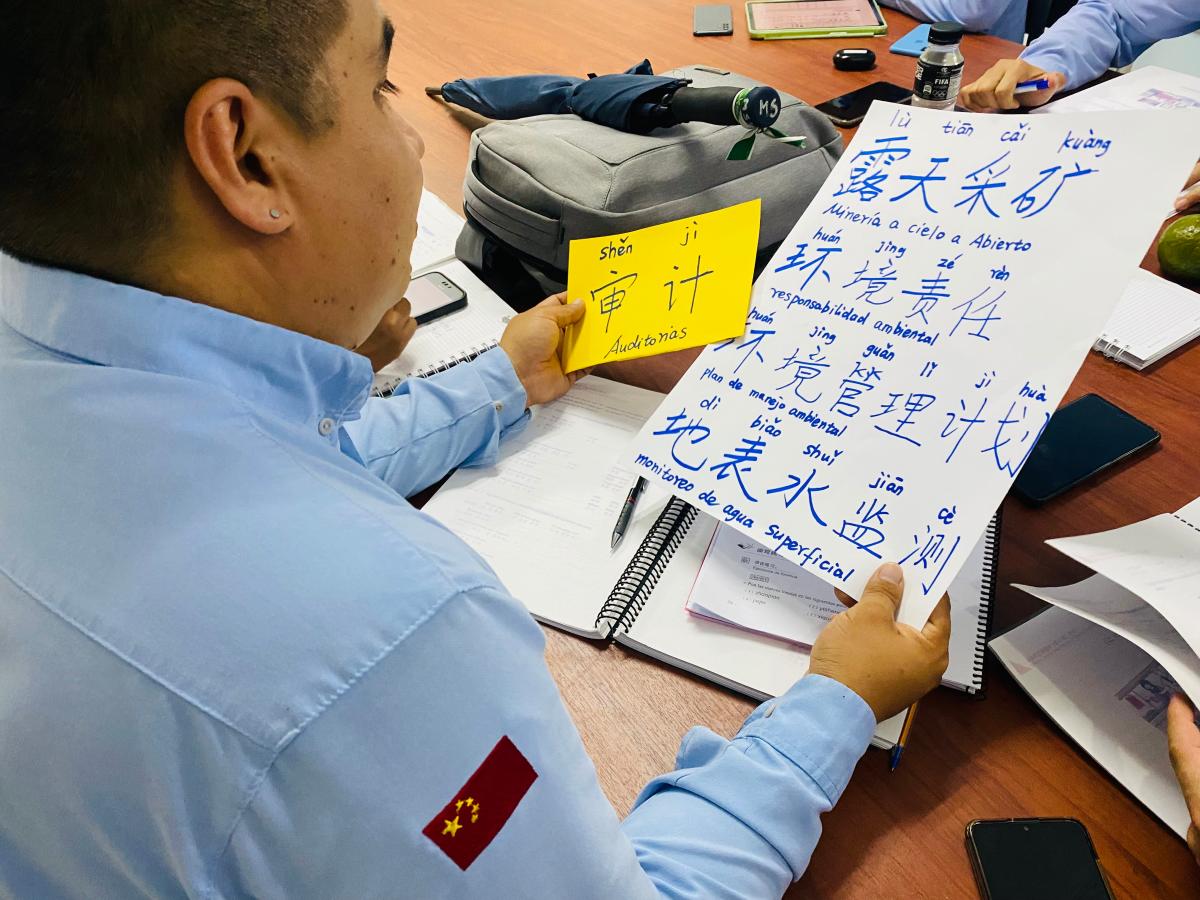 MS
FIFA
shěn jì
审计
Auditorias
lù tiān cǎi kuàng
露天采矿
Minería a cielo a Abierto
huán jìng zé rèn
环境责任
responsabilidad ambiental
huán jìng guǎn lǐ jì huà
环境管理计划
Plan de manejo ambiental
dì biǎo shuǐ jiān cè
地表水监测
monitoreo de agua superficial